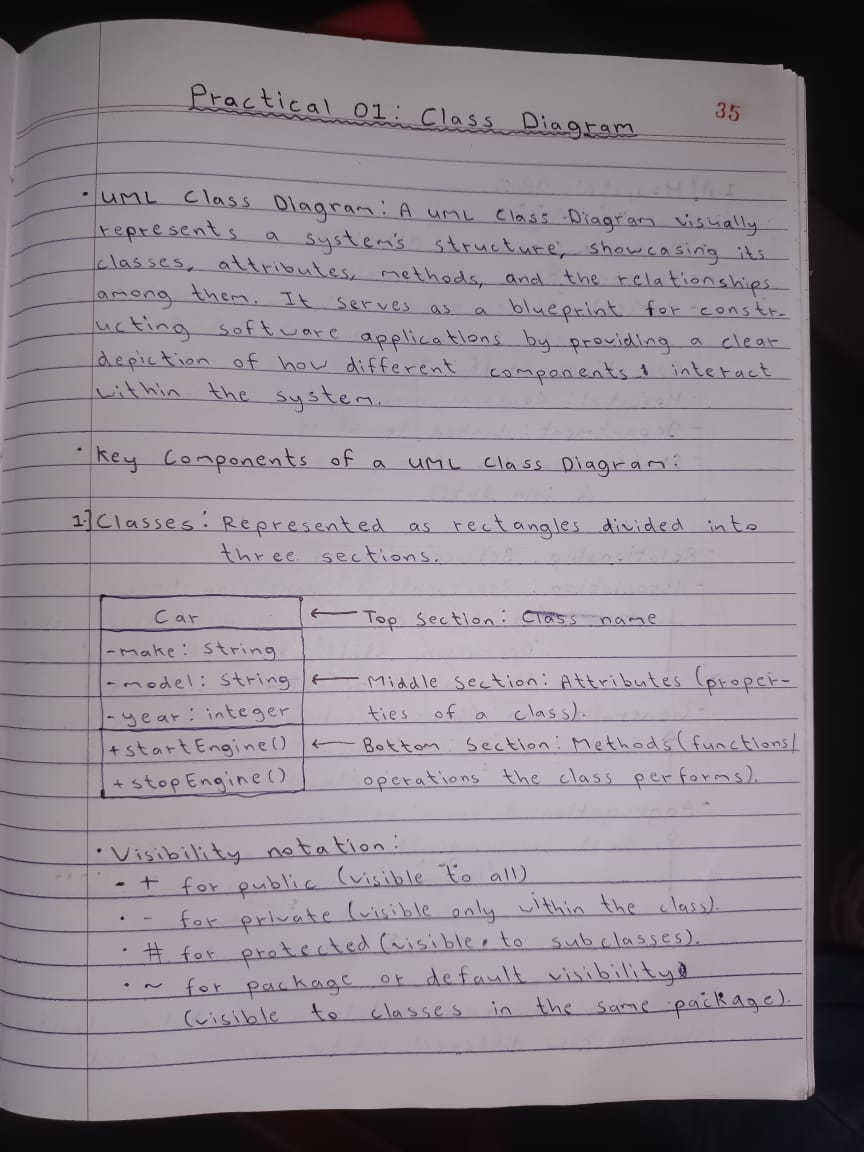 Practical 01: Class Diagram
35
• UML Class Diagram: A UML Class Diagram visually
represents a system's structure, showcasing its
classes, attributes, methods, and the relationships
among them. It serves as a blueprint for constr-
ucting software applications by providing a clear
depiction of how different components interact
within the system.
• Key Components of a UML Class Diagram:
1] Classes: Represented as rectangles divided into
three sections.
Car ← Top Section: Class name
-make: String
-model: String ← Middle Section: Attributes (proper-
-year: integer ties of a class).
+startEngine() ← Bottom Section: Methods (functions/
+stopEngine() operations the class performs).
• Visibility notation:
• + for public (visible to all)
• - for private (visible only within the class).
• # for protected (visible to subclasses).
• ~ for package or default visibility
(visible to classes in the same package).